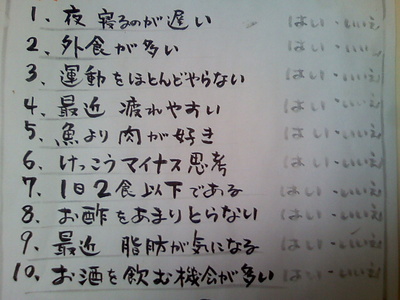 1、夜寝るのが遅い はい・いいえ
2、外食が多い はい・いいえ
3、運動をほとんどやらない はい・いいえ
4、最近 疲れやすい はい・いいえ
5、魚より肉が好き はい・いいえ
6、けっこうマイナス思考 はい・いいえ
7、1日2食以下である はい・いいえ
8、お酢をあまりとらない はい・いいえ
9、最近 脂肪が気になる はい・いいえ
10、お酒を飲む機会が多い はい・いいえ